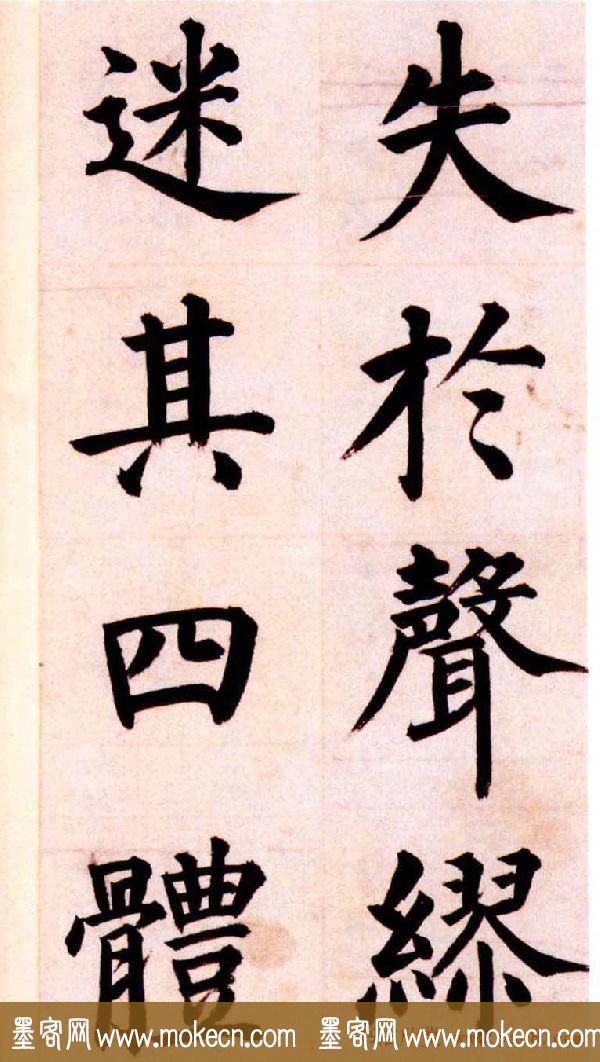 失於聲繆
迷其四體
墨客网 www.mokecn.com 墨客网 www.mokecn.com